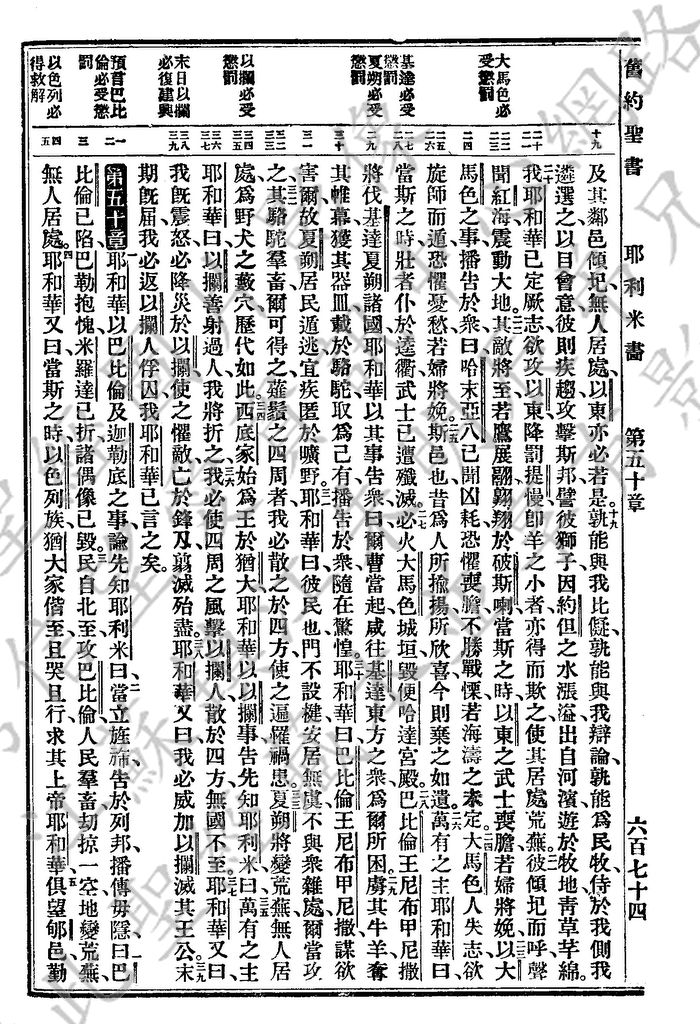 舊約聖書 耶利米書 第五十章 六百七十四
十九
大馬色必受懲罰
基達必受懲罰
夏朔必受懲罰
以攔必受懲罰
末日以攔必復建興
預言巴比倫必受懲罰
以色列必得救解
及其鄰邑傾圮無人居處以東亦必若是十九孰能與我比儗孰能與我辯論孰能爲民牧侍於我側我
遴選之以目會意彼則疾趨攻擊斯邦譬彼獅子因約但之水漲溢出自河濱遊於牧地靑草芊綿
二十我耶和華已定厥志欲攻以東降罰提慢卽羊之小者亦得而欺之使其居處荒蕪二一彼傾圮而呼聲
聞紅海震動大地二二其敵將至若鷹展翮翺翔於破斯喇當斯之時以東之武士喪膽若婦將娩二三以大
馬色之事播告於衆曰哈末亞八已聞凶耗恐懼喪膽不勝戰慄若海濤之未定二四大馬色人失志欲
旋師而遁恐懼憂愁若婦將娩二五斯邑也昔爲人所揄揚所欣喜今則棄之如遺二六萬有之主耶和華曰
當斯之時壯者仆於逵衢武士已遭殲滅二七必火大馬色城垣毀便哈達宮殿二八巴比倫王尼布甲尼撒
將伐基達夏朔諸國耶和華以其事告衆曰爾曹當起咸往基達東方之衆爲爾所困二九虜其牛羊奪
其帷幕獲其器皿載於駱駝取爲己有播告於衆隨在驚惶三十耶和華曰巴比倫王尼布甲尼撒謀欲
害爾故夏朔居民遁逃宜疾匿於曠野三一耶和華曰彼民也門不設楗安居無虞不與衆雜處爾當攻
之三二其駱駝羣畜爾可得之薙鬚之四周者我必散之於四方使之遍罹禍患三三夏朔將變荒蕪無人居
處爲野犬之藪穴歷代如此三四西底家始爲王於猶大耶和華以以攔事告先知耶利米曰三五萬有之主
耶和華曰以攔善射過人我將折之三六我必使四周之風擊以攔人散於四方無國不至三七耶和華又曰
我旣震怒必降災於以攔使之懼敵亡於鋒刃翦滅殆盡三八耶和華又曰我必威加以攔滅其王公三九末
期旣屆我必返以攔人俘囚我耶和華已言之矣
第五十章一耶和華以巴比倫及迦勒底之事諭先知耶利米曰二當立旌旆告於列邦播傳毋隱曰巴
比倫已陷巴勒抱愧米羅達已折諸偶像已毀三民自北至攻巴比倫人民羣畜刼掠一空地變荒蕪
無人居處四耶和華又曰當斯之時以色列族猶大家偕至且哭且行求其上帝耶和華五俱望郇邑勤